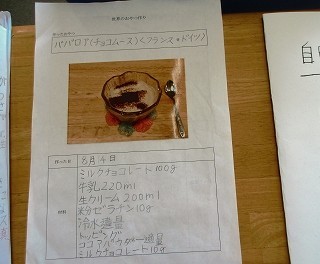 世界のおやつ作り
ババロア(チョコムース)<フランス・ドイツ>
作った日
8月4日
材料
ミルクチョコレート100g
牛乳220ml
生クリーム200ml
粉ゼラチン10g
冷水適量
トッピング
ココアパウダー適量
ミルクチョコレート10g